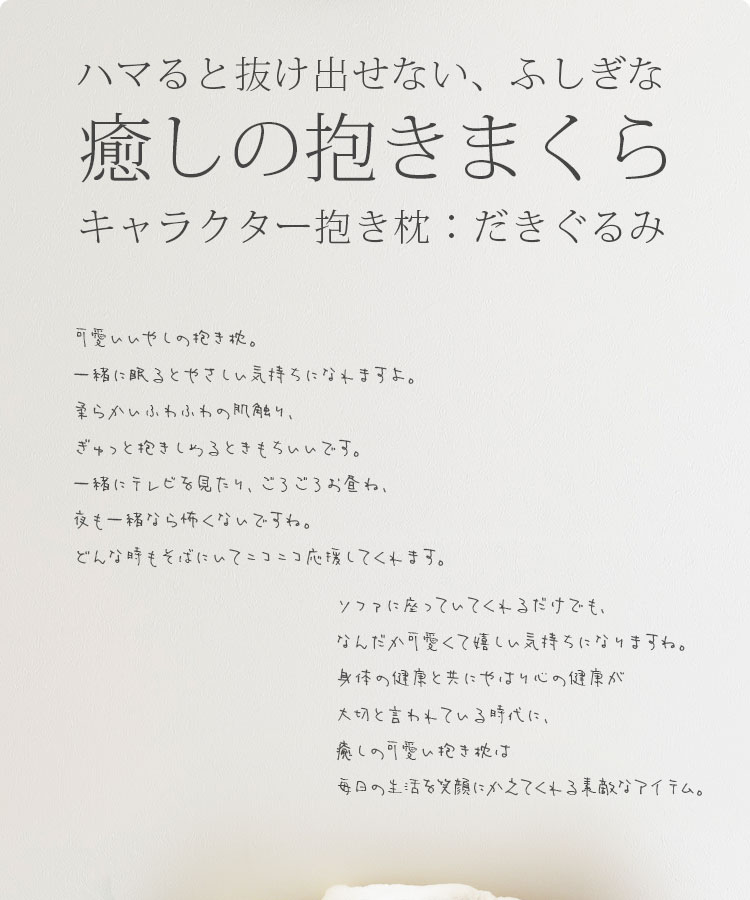 ハマると抜け出せない、ふしぎな
癒しの抱きまくら
キャラクター抱き枕：だきぐるみ
可愛いいやしの抱き枕。
一緒に眠るとやさしい気持ちになれますよ。
柔らかいふわふわの肌触り、
ぎゅっと抱きしめるときもちいいです。
一緒にテレビを見たり、ごろごろお昼ね、
夜も一緒なら怖くないですね。
どんな時もそばにいてニコニコ応援してくれます。
ソファに座っていてくれるだけでも、
なんだか可愛くて嬉しい気持ちになりますね。
身体の健康と共にやはり心の健康が
大切と言われている時代に、
癒しの可愛い抱き枕は
毎日の生活を笑顔にかえてくれる素敵なアイテム。